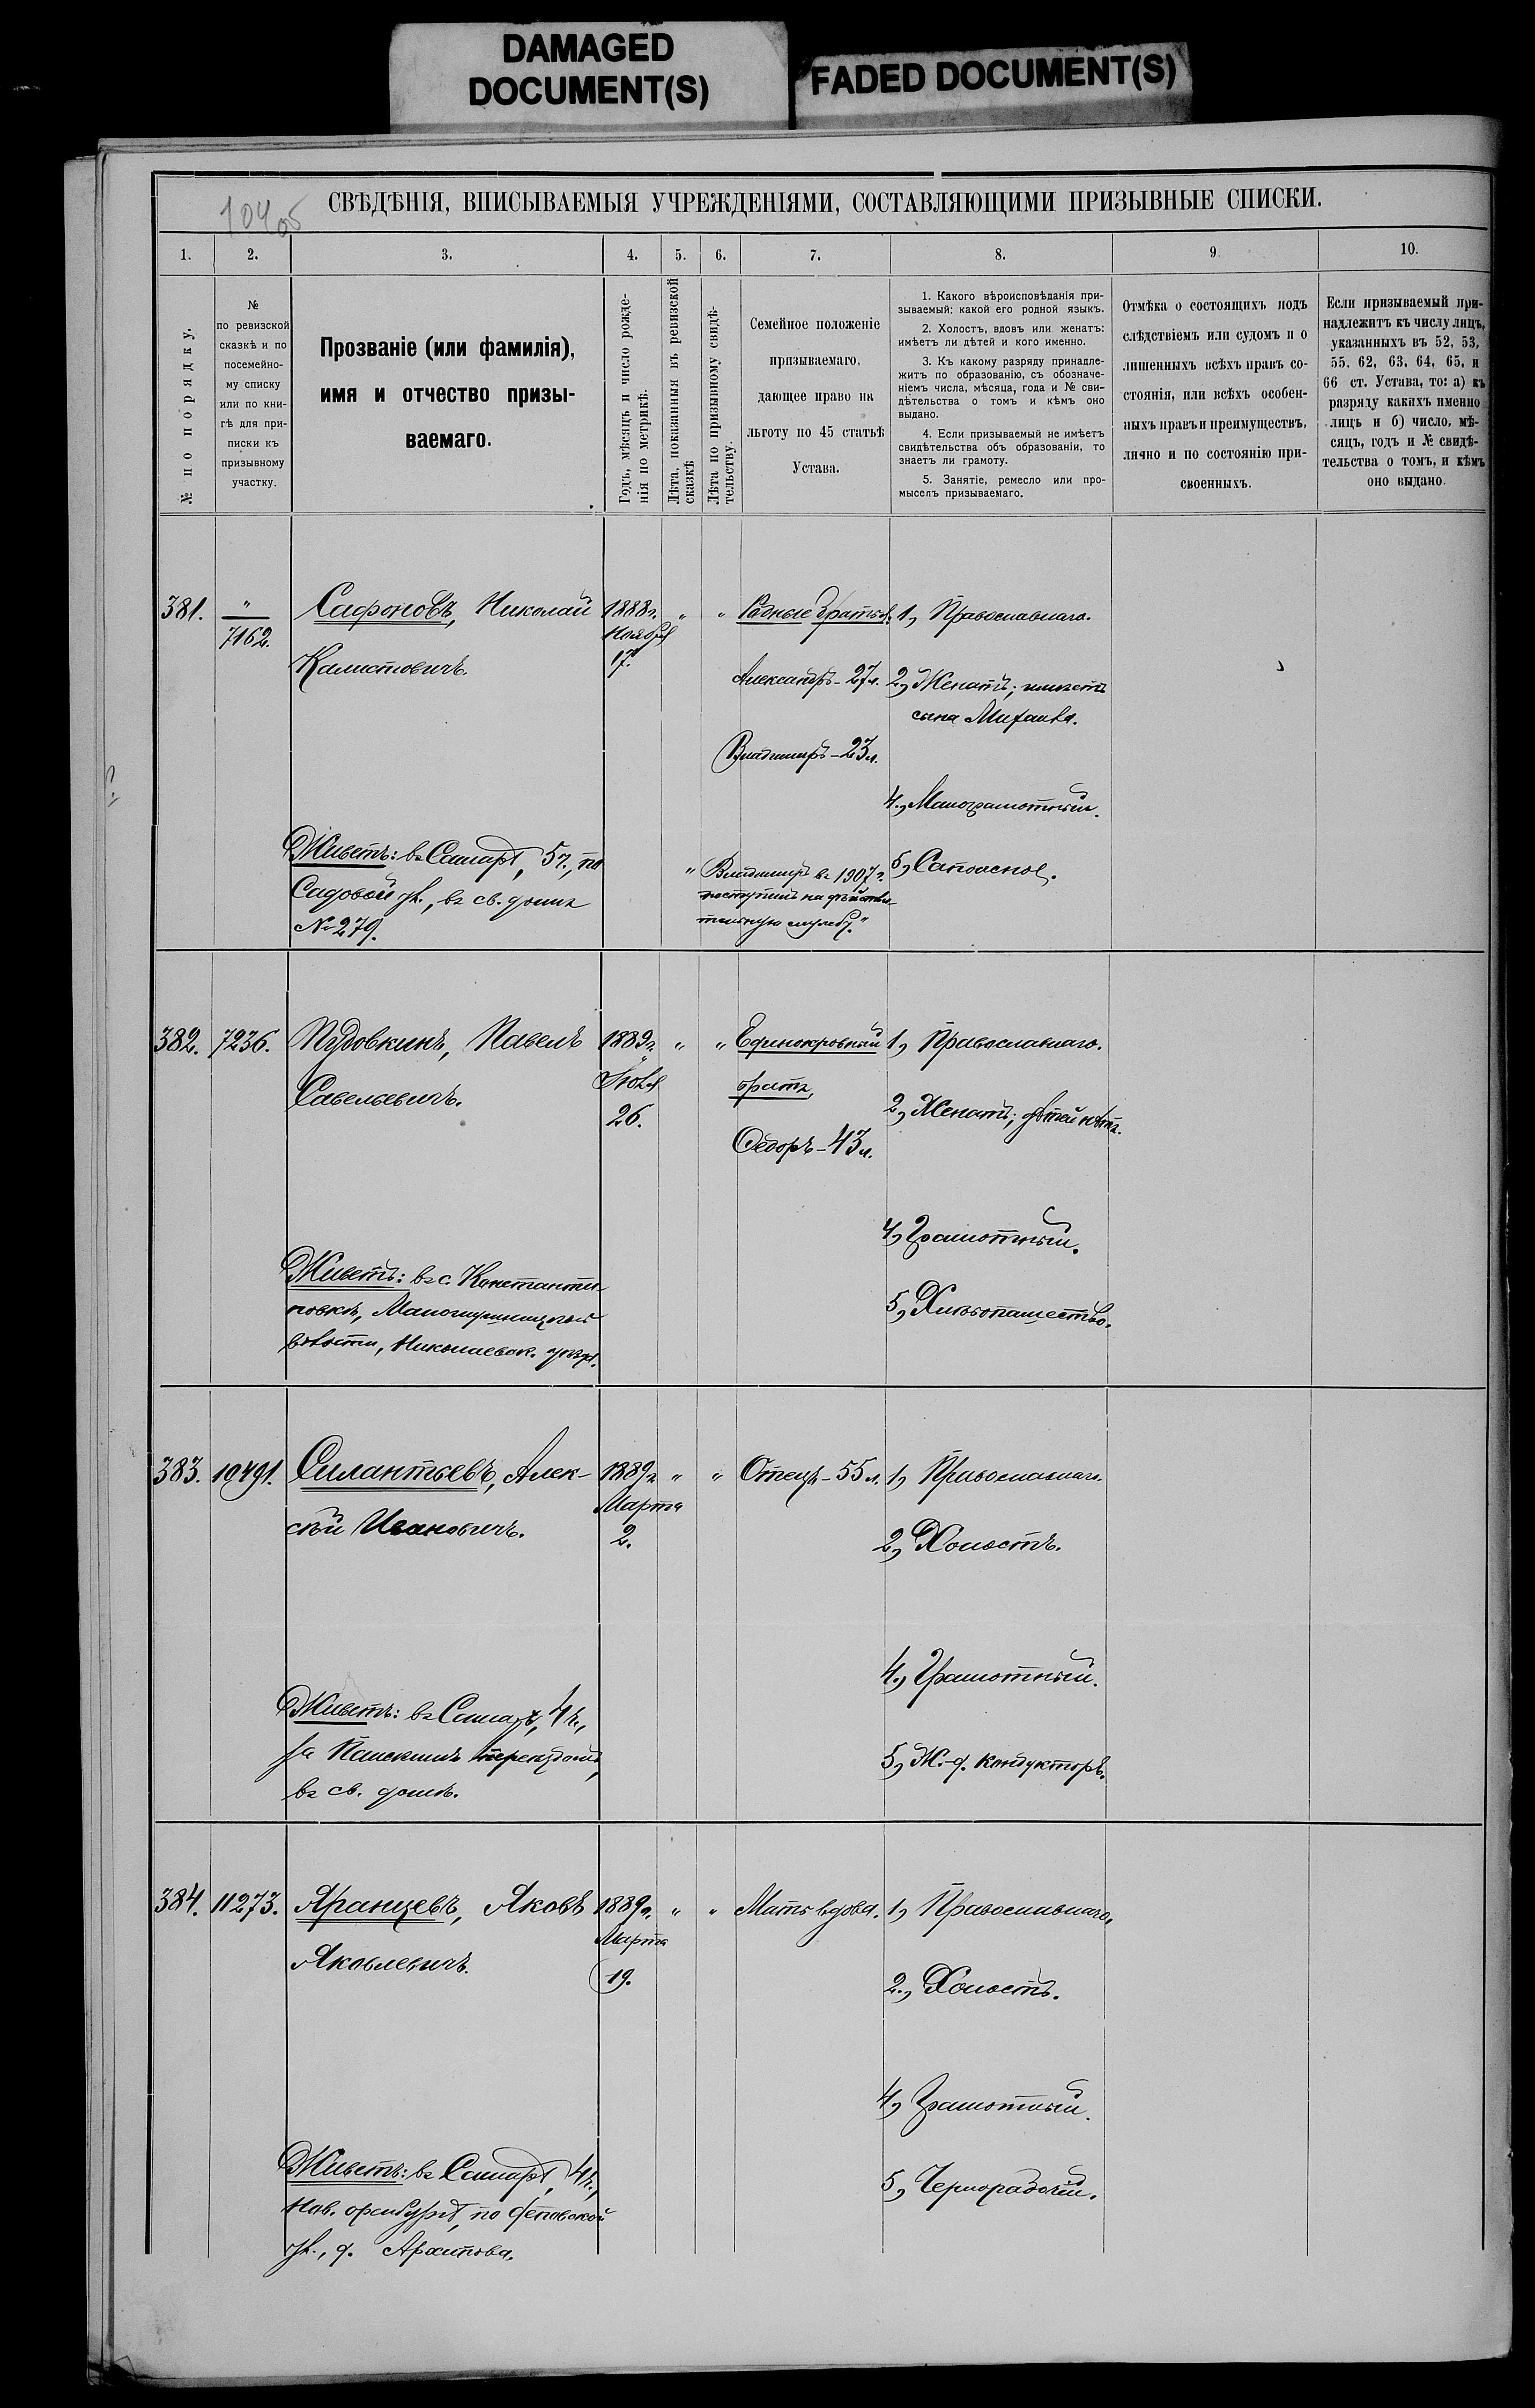 DAMAGED
DOCUMENT(S)
FADED DOCUMENT(S)
СВѢДѢНІЯ, ВПИСЫВАЕМЫЯ УЧРЕЖДЕНІЯМИ, СОСТАВЛЯЮЩИМИ ПРИЗЫВНЫЕ СПИСКИ.
1.
2.
3.
4.
5.
6.
7.
8.
9.
10.
№ по порядку.
№
по ревизской
сказкѣ и по
посемейно-
му списку
или по кни-
гѣ для при-
писки къ
призывному
участку.
Прозваніе (или фамилія),
имя и отчество призы-
ваемаго.
Годъ, мѣсяцъ и число рожде-
нія по метрикѣ.
Лѣта, показанныя въ ревизской
сказкѣ
Лѣта по призывному свидѣ-
тельству.
Семейное положеніе
призываемаго,
дающее право на
льготу по 45 статьѣ
Устава.
1. Какого вѣроисповѣданія при-
зываемый: какой его родной языкъ.
2. Холостъ, вдовъ или женатъ:
имѣетъ ли дѣтей и кого именно.
3. Къ какому разряду принадле-
житъ по образованію, съ обозначе-
ніемъ числа, мѣсяца, года и № сви-
дѣтельства о томъ и кѣмъ оно
выдано.
4. Если призываемый не имѣетъ
свидѣтельства объ образованіи, то
знаетъ ли грамоту.
5. Занятіе, ремесло или про-
мыселъ призываемаго.
Отмѣка о состоящихъ подъ
слѣдствіемъ или судомъ и о
лишенныхъ всѣхъ правъ со-
стоянія, или всѣхъ особен-
ныхъ правъ и преимуществъ,
лично и по состоянію при-
своенныхъ.
Если призываемый при-
надлежитъ къ числу лицъ,
указанныхъ въ 52, 53,
55, 62, 63, 64, 65, и
66 ст. Устава, то: а) къ
разряду какихъ именно
лицъ и б) число, мѣ-
сяцъ, годъ и № свидѣ-
тельства о томъ, и кѣмъ
оно выдано.
381.
"
7162.
Сафоновъ, Николай
Калистовичъ.
Живетъ: въ Самарѣ, 5 ч., по
Садовой ул., въ св. домѣ
№ 279.
1888 г.
Ноября
17.
"
"
Родные братья:
Александръ - 27 л.
Владиміръ - 23 л.
"Владиміръ въ 1907 г.
поступилъ на дѣйстви-
тельную службу."
1, Православнаго.
2, Женатъ; имѣетъ
сына Михаила.
4, Малограмотный.
5, Сапожное.
382.
7236.
Пудовкинъ, Павелъ
Савельевичъ.
Живетъ: въ с. Константи-
новкѣ,
волости, Николаевск. уѣзда.
1889 г.
Іюля
26.
"
"
Единокровный
братъ,
Ѳедоръ - 43 л.
1, Православнаго.
2, Женатъ; дѣтей нѣтъ.
4, Грамотный.
5, Хлѣбопашество.
383.
10491.
Силантьевъ, Алек-
сѣй Ивановичъ.
Живетъ: въ Самарѣ, 4 ч.,
за Панскимъ переѣздомъ,
въ св. домѣ.
1889 г.
Марта
2.
"
"
Отецъ - 55 л.
1, Православнаго.
2, Холостъ.
4, Грамотный.
5, Ж.-д. кондукторъ.
384.
11273.
Яранцевъ, Яковъ
Яковлевичъ.
Живетъ: въ Самарѣ, 4 ч.,
Нов. Оренбургѣ, по
ул., д. Архипова.
1889 г.
Марта
19.
"
"
Мать вдова.
1, Православнаго.
2, Холостъ.
4, Грамотный.
5, Чернорабочій.